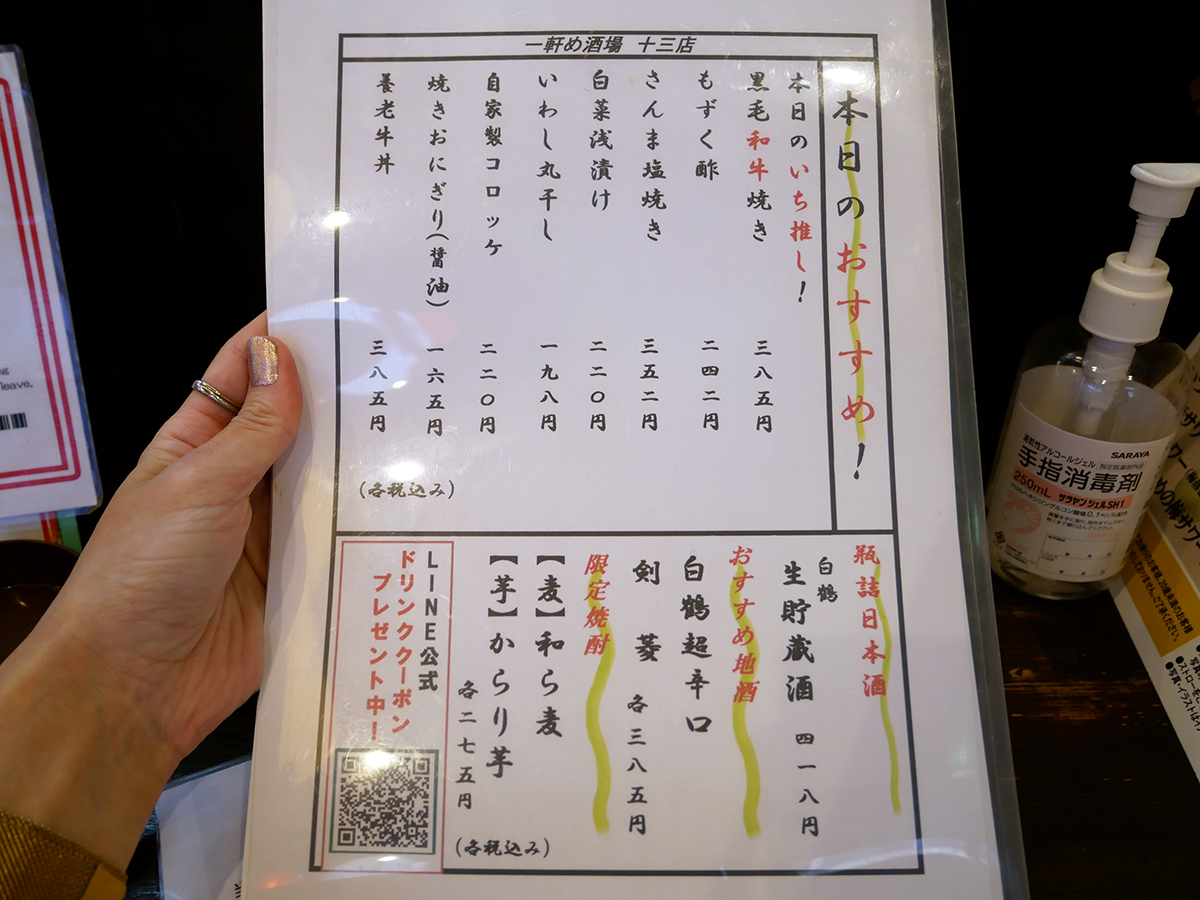 一軒め酒場 十三店
本日のおすすめ!
本日のいち推し!
黒毛和牛焼き 三八五円
もずく酢 二四二円
さんま塩焼き 三五二円
白菜浅漬け 二二〇円
いわし丸干し 一九八円
自家製コロッケ 二二〇円
焼きおにぎり(醤油) 一六五円
養老牛丼 三八五円
(各税込み)
瓶詰日本酒
白鶴
生貯蔵酒 四一八円
おすすめ地酒
白鶴超辛口
剣菱 各三八五円
限定焼酎
【麦】和ら麦
【芋】からり芋
各二七五円
(各税込み)
LINE公式
ドリンククーポン
プレゼント中!
leave.
SARAYA
速乾性アルコールジェル
指定医薬部外品
手指消毒剤
250mL サラヤンジェルSH1